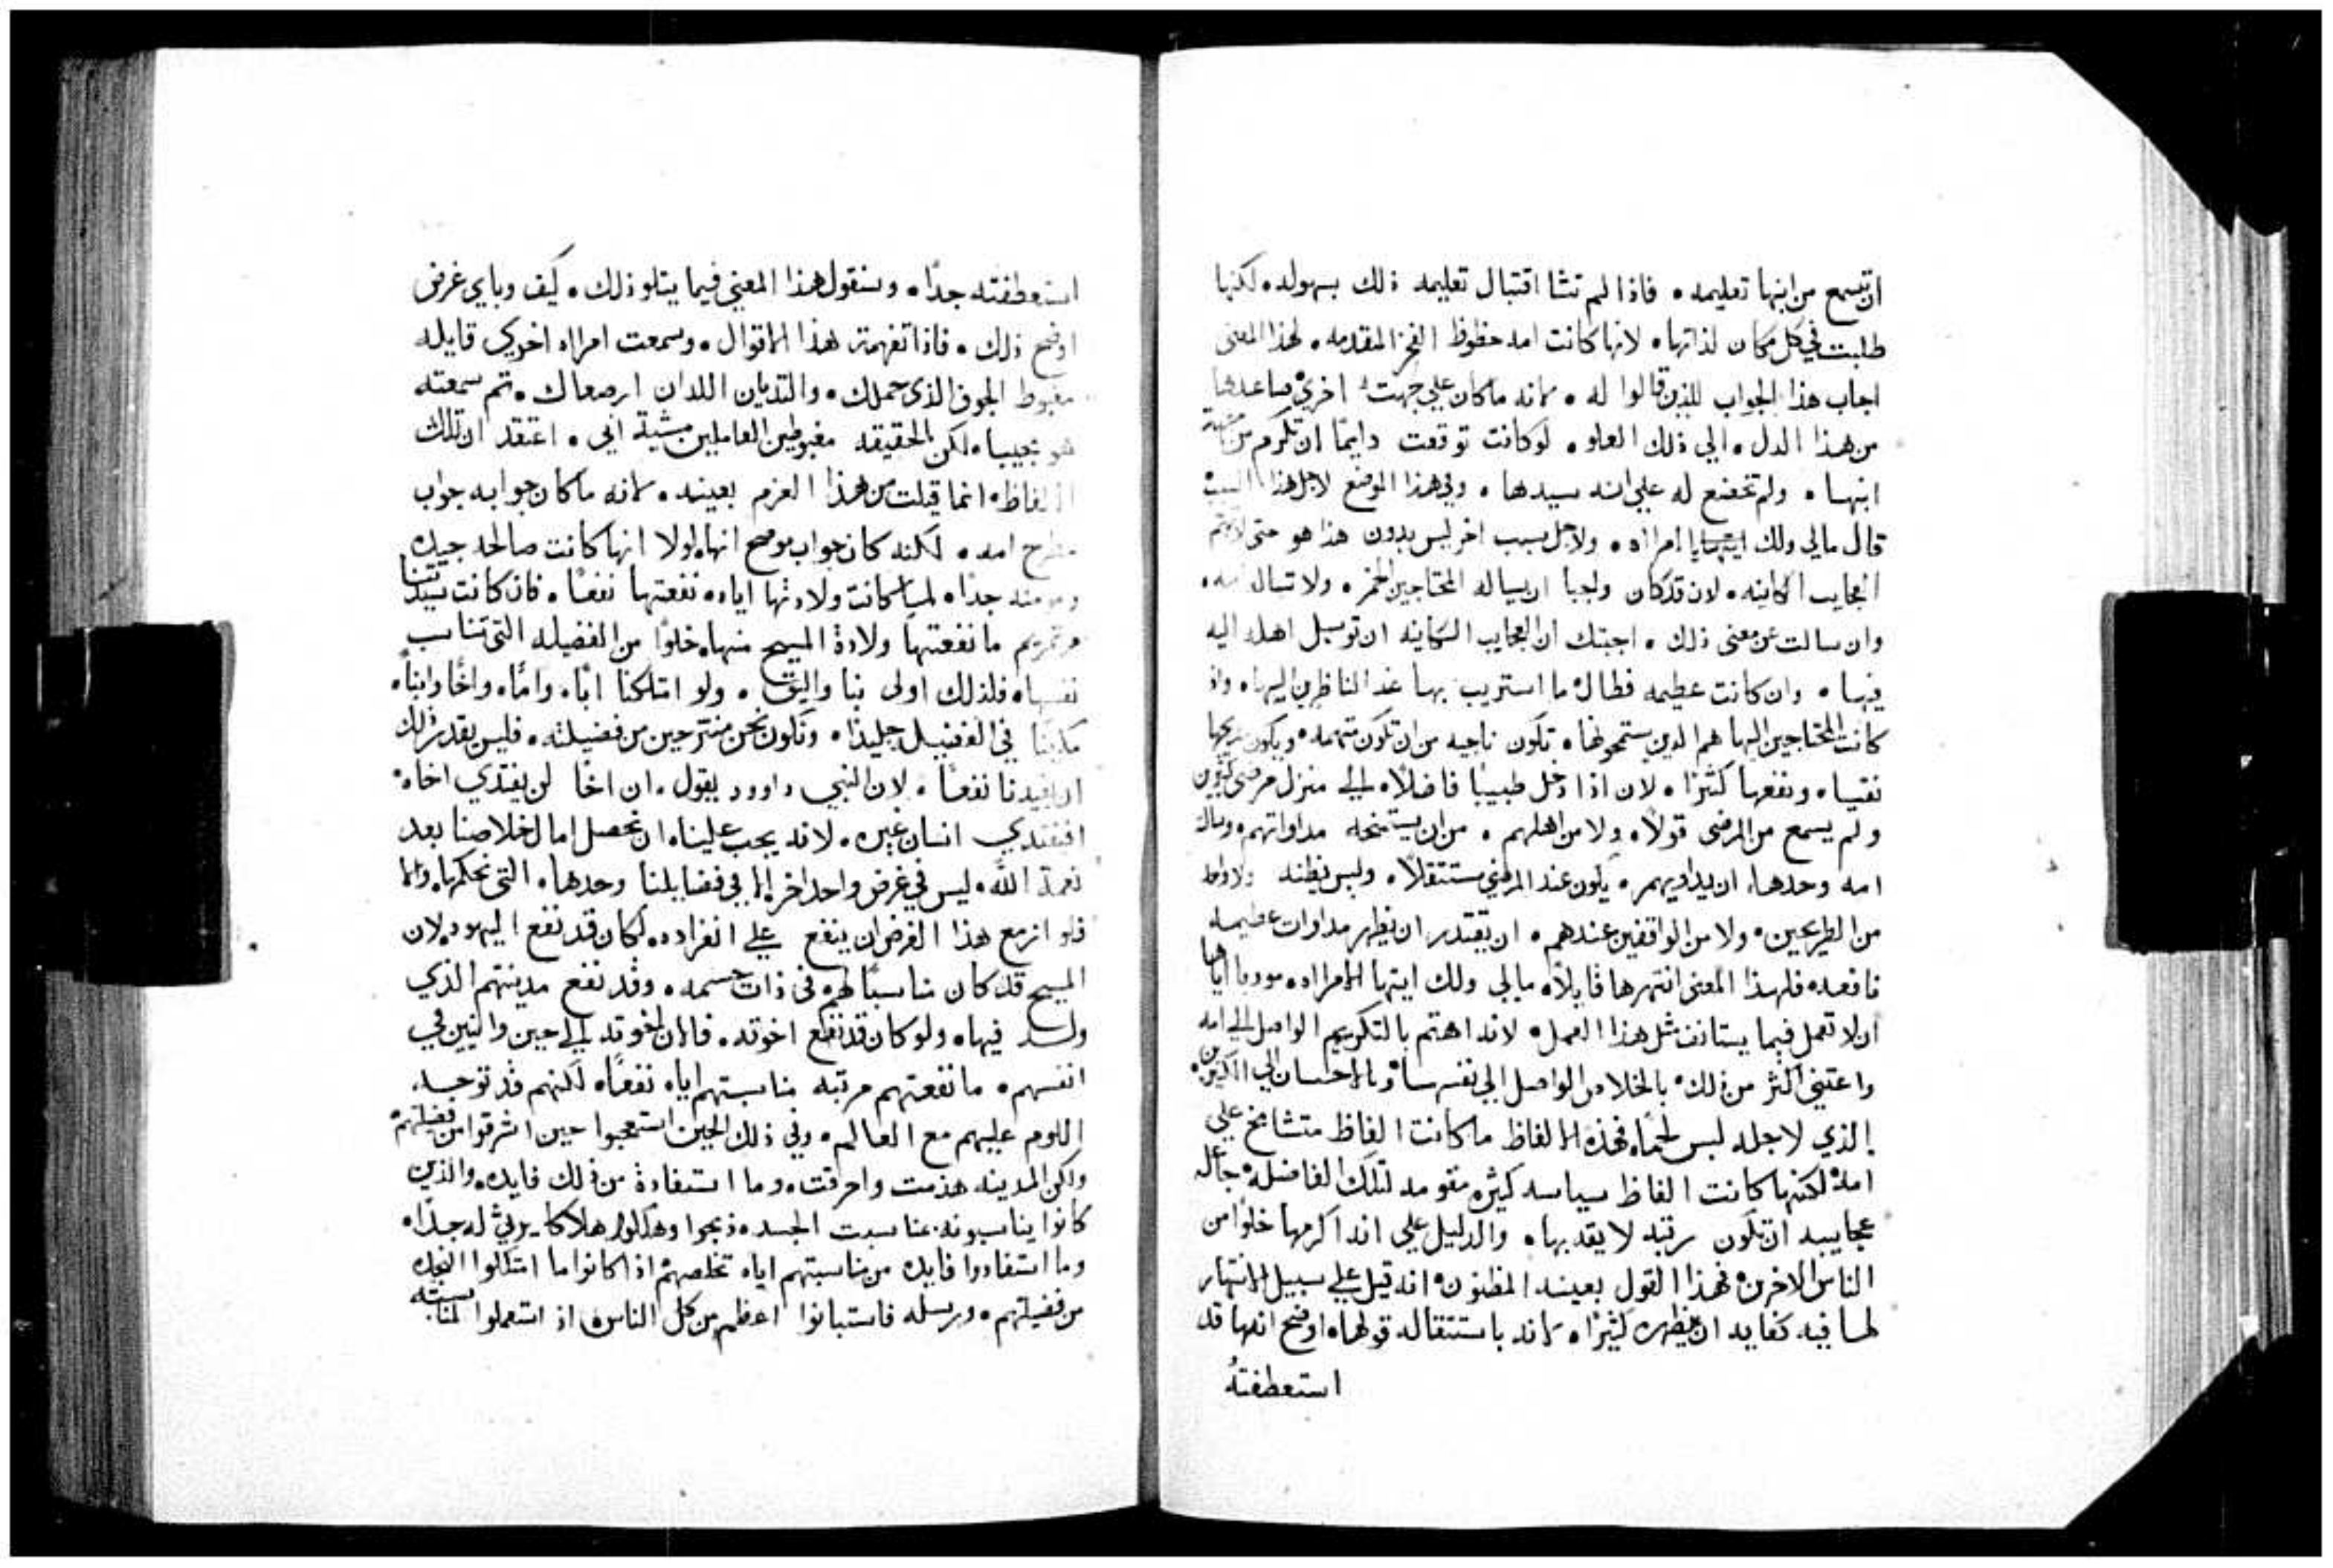 ان تسمع من ابنها تعليمه ٠ فاذا لم تشا اقتبال تعليمه ذلك بسهوله ٠ لكنها
طلبت في كل مكان لذاتها ٠ لانها كانت امه حظوظ الفخر المقدمه ٠ لهذا المعنى
اجاب هذا الجواب للذين قالوا له ٠ لانه ما كان علي جهت اخري صاعدها
من هذا الدل ٠ الي ذلك العلو ٠ لو كانت توقعت دايمًا ان تكرم من جهة
ابنها ٠ ولم تخضع له علي انه سيدها ٠ وفي هذا الموضع لاجل هذا السبب
قال مالي ولك ايتها يا امراه ٠ ولاجل سبب اخر ليس بدون هذا هو حتى لا تتهم
العجايب الكاينه ٠ لان قد كان واجبا ان يساله المحتاجين الخمر ٠ ولا تسال امه ٠
وان سالت عن معنى ذلك ٠ اجبتك ان العجايب الكاينه ان توسل اهله اليه
فيها ٠ وان كانت عظيمه فطال ما استريب بها عند الناظرين اليها ٠ واذ
كانت المحتاجين اليها هم الذين يستمحونها ٠ تكون ناجيه من ان تكون متهمه ٠ ويكون مديحها
نقيا ٠ ونفعها كثيرًا ٠ لان اذا دخل طبيبًا فاضلًا ٠ الي منزل مرضى كثيرين
ولم يسمع من المرضى قولًا ٠ ولا من اهلهم ٠ من ان يستمنحه مداواتهم ٠ وساله
امه وحدها ٠ ان يداويهم ٠ يكون عند المرضي مستثقلًا ٠ وليس يظنه ولا واحد
من الطريحين ٠ ولا من الواقفين عندهم ٠ ان يقتدر ان يظهر مداوات عظيمه
نافعه ٠ فلهذا المعنى انتهرها قايلًا ٠ مالي ولك ايتها الامراه ٠ مودبا اياها
ان لا تعمل فيما يستانف مثل هذا العمل ٠ لانه اهتم بالتكريم الواصل الي امه
واعتني اكثر من ذلك ٠ بالخلاص الواصل الي نفسها ٠ وبالاحسان الي الكثيرين
الذي لاجله لبس لحمًا ٠ فهذه الالفاظ ما كانت الفاظ متشامخ علي
امه ٠ لكنها كانت الفاظ سياسه كثيره مقومه لتلك الفاضله ٠ جاعله
عجايبه ان تكون رتبه لا يقد بها ٠ والدليل علي انه اكرمها خلوًا من
الناس الاخرين ٠ فهذا القول بعينه المظنون ٠ انه قيل علي سبيل الانتهار
لها فيه كفايه ان يظهره كثيرًا ٠ لانه باستثقاله قولها ٠ اوضح انها قد
استعطفتهُ
استعطفته جدًا ٠ وسنقول هذا المعني فيما يتلو ذلك ٠ كيف وباي غرض
اوضح ذلك ٠ فاذا تفهمتم هذا الاقوال ٠ وسمعت امراه اخري قايله
مغبوط الجوف الذي حملك ٠ والثديان اللذان ارضعاك ٠ ثم سمعته
هو مجيبا ٠ لكن بالحقيقه مغبوطين العاملين مشية ابي ٠ اعتقد ان تلك
الالفاظ ٠ انما قيلت من هذا العزم بعينه ٠ لانه ما كان جوابه جواب
مطرح امه ٠ لكنه كان جواب موضح انها ٠ لولا انها كانت صالحه جيده
ومومنه جدًا ٠ لما كانت ولادتها اياه ٠ نفعتها نفعًا ٠ فان كانت سيدتنا
مرتمريم ما نفعتها ولادة المسيح منها ٠ خلوًا من الفضيله التي تناسب
نفسها ٠ فلذلك اولى بنا واليق ٠ ولو امتلكنا ابًا ٠ وامًا ٠ واخًا وابنًا ٠
مكينًا في الفضيله جليدًا ٠ ونكون نحن منتزحين من فضيلته ٠ فليس يقدر ذلك
ان يفيدنا نفعًا ٠ لان النبي داوود يقول ٠ ان اخًا لن يفتدي اخاه ٠
افيفتدي انسان غيره ٠ لانه يجب علينا ٠ ان نحصل امال خلاصنا بعد
نعمة الله ٠ ليس في غرض واحد اخر الا في فضايلنا وحدها ٠ التي نحكمها ٠ والا
فلو ازمع هذا الغرض ان ينفع علي انفراده ٠ لكان قد نفع اليهود ٠ لان
المسيح قد كان مناسبًا لهم في ذات جسمه ٠ وقد نفع مدينتهم الذي
ولد فيها ٠ ولو كان قد نفع اخوته ٠ فالان اخوته الي حين والنين في
انفسهم ٠ ما نفعتهم مرتبه مناسبتهم اياه نفعًا ٠ لكنهم قد توجه
اللوم عليهم مع العالم ٠ وفي ذلك الحين استعجبوا حين اشرقوا من فضيلتهم
ولكن المدينه هدمت واحرقت ٠ وما استفادة من ذلك فايده ٠ والذين
كانوا يناسبونه بمناسبت الجسد ٠ ذبحوا وهلكوا هلاكا يرثي له جدًا ٠
وما استفادوا فايده من مناسبتهم اياه تخلصهم اذا كانوا ما امتلكوا النجده
من فضيلتهم ٠ ورسله فاستبانوا اعظم من كل الناس ٠ اذ استعملوا المناسبته